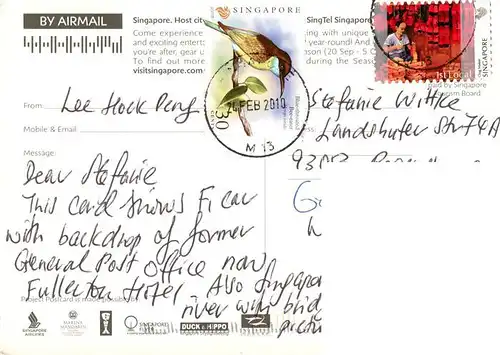 BY AIRMAIL
Singapore. Host ci
SingTel Singapor
SINGAPORE
Come experience
ng with unique
and exciting enterta
year-round! And
you're after, gear u
ason (20 Sep - 5 O
To find out more
during the Seaso
visitsingapore.com
1st Local
SINGAPORE
aid by Singapore
urism Board
24 FEB 2010
M 13
30
From:
Lee Hock Peng
Mobile & Email:
Stefanie Wittke
Landshuter Str 74A
Message:
Dear Stefanie
This card shows F1 car
with backdrop of former
General Post Office now
Fullerton Hotel. Also Singapor
river with brid
Project Postcard is made possible by
SINGAPORE AIRLINES
MARINA MANDARIN
SINGAPORE FLYER
DUCK & HIPPO